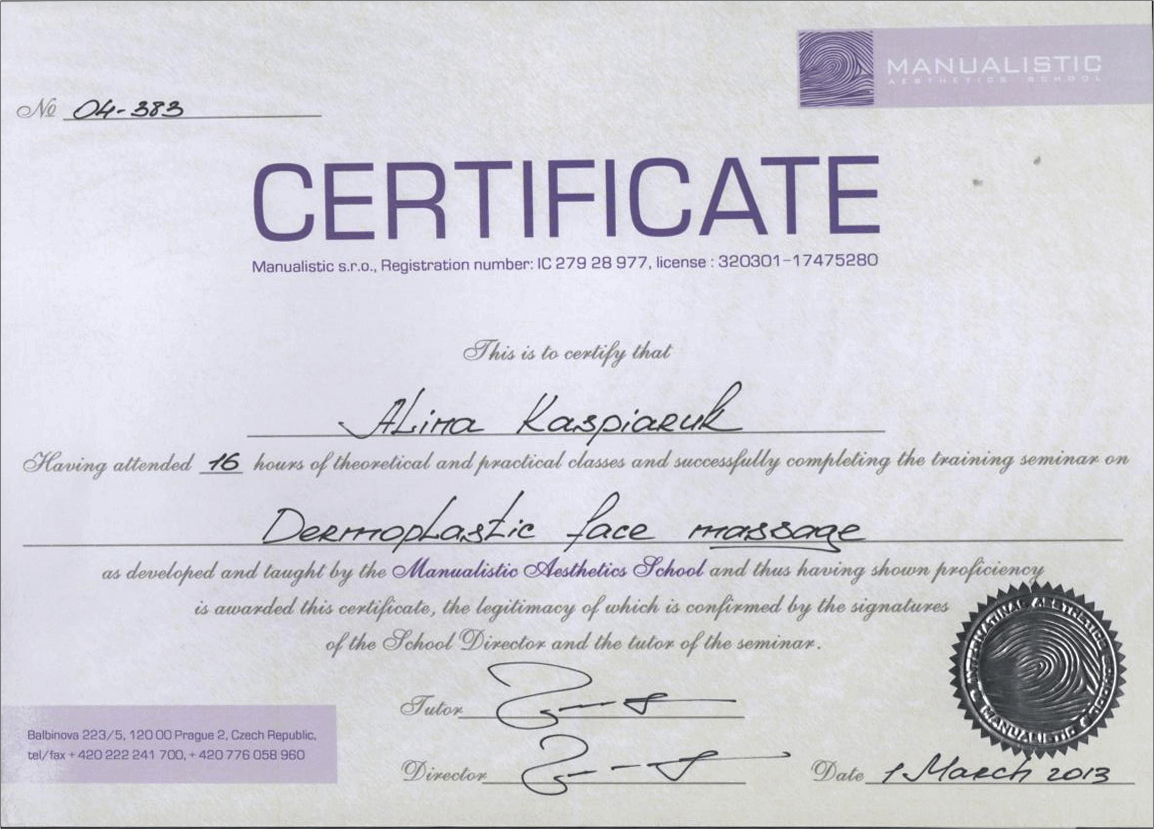 MANUALISTIC
AESTHETICS SCHOOL
№ 04-383
CERTIFICATE
Manualistic s.r.o., Registration number: IC 279 28 977, license : 320301-17475280
This is to certify that
Alina Kaspiaruk
Having attended 16 hours of theoretical and practical classes and successfully completing the training seminar on
Dermoplastic face massage
as developed and taught by the Manualistic Aesthetics School and thus having shown proficiency
is awarded this certificate, the legitimacy of which is confirmed by the signatures
of the School Director and the tutor of the seminar.
Tutor
Balbinova 223/5, 120 00 Prague 2, Czech Republic,
tel/fax + 420 222 241 700, + 420 776 058 960
Director
Date 1 March 2013
MANUALISTIC